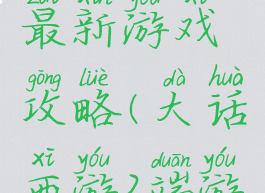 zuì xīn yóu xì
最新游戏
gōng lüè dà huà
攻略(大话
xī yóu duān yóu
西游2端游